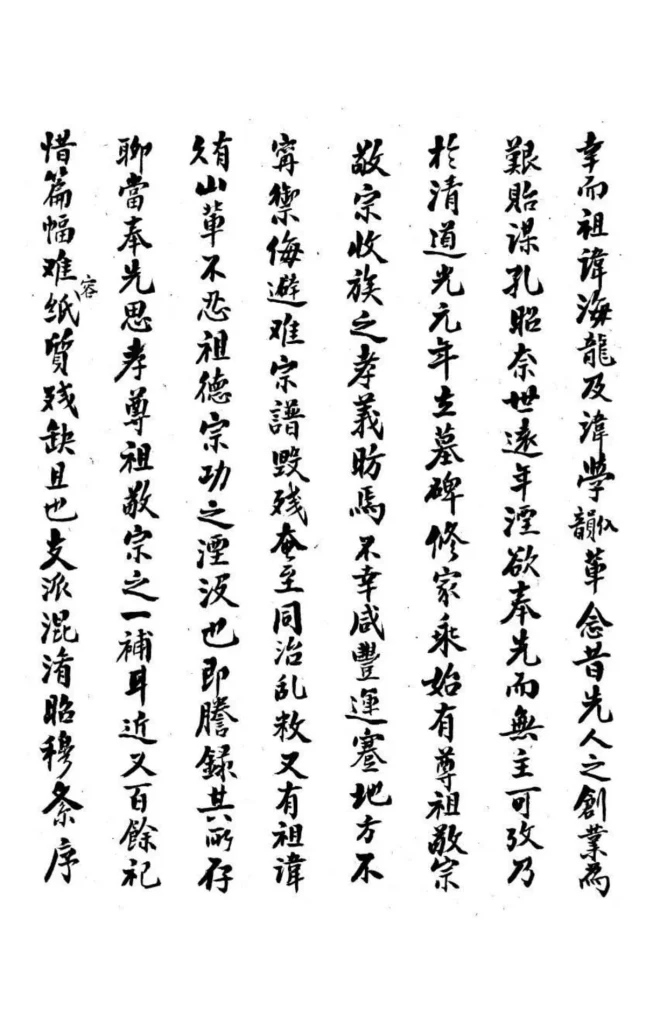 幸而祖諱海龍及諱學韻輩念昔先人之創業為
艱貽謀孔昭奈世遠年湮欲奉先而無主可攷乃
於清道光元年立墓碑修家乘始有尊祖敬宗
敬宗收族之孝義昉焉不幸咸豐運蹇地方不
甯禦侮避难宗譜毀残奄至同治乱敉又有祖諱
山輩不忍祖德宗功之湮沒也即謄録其所存
聊當奉先思孝尊祖敬宗之一補耳近又百餘祀
惜篇幅难容纸質残缺且也支派混淆昭穆紊序